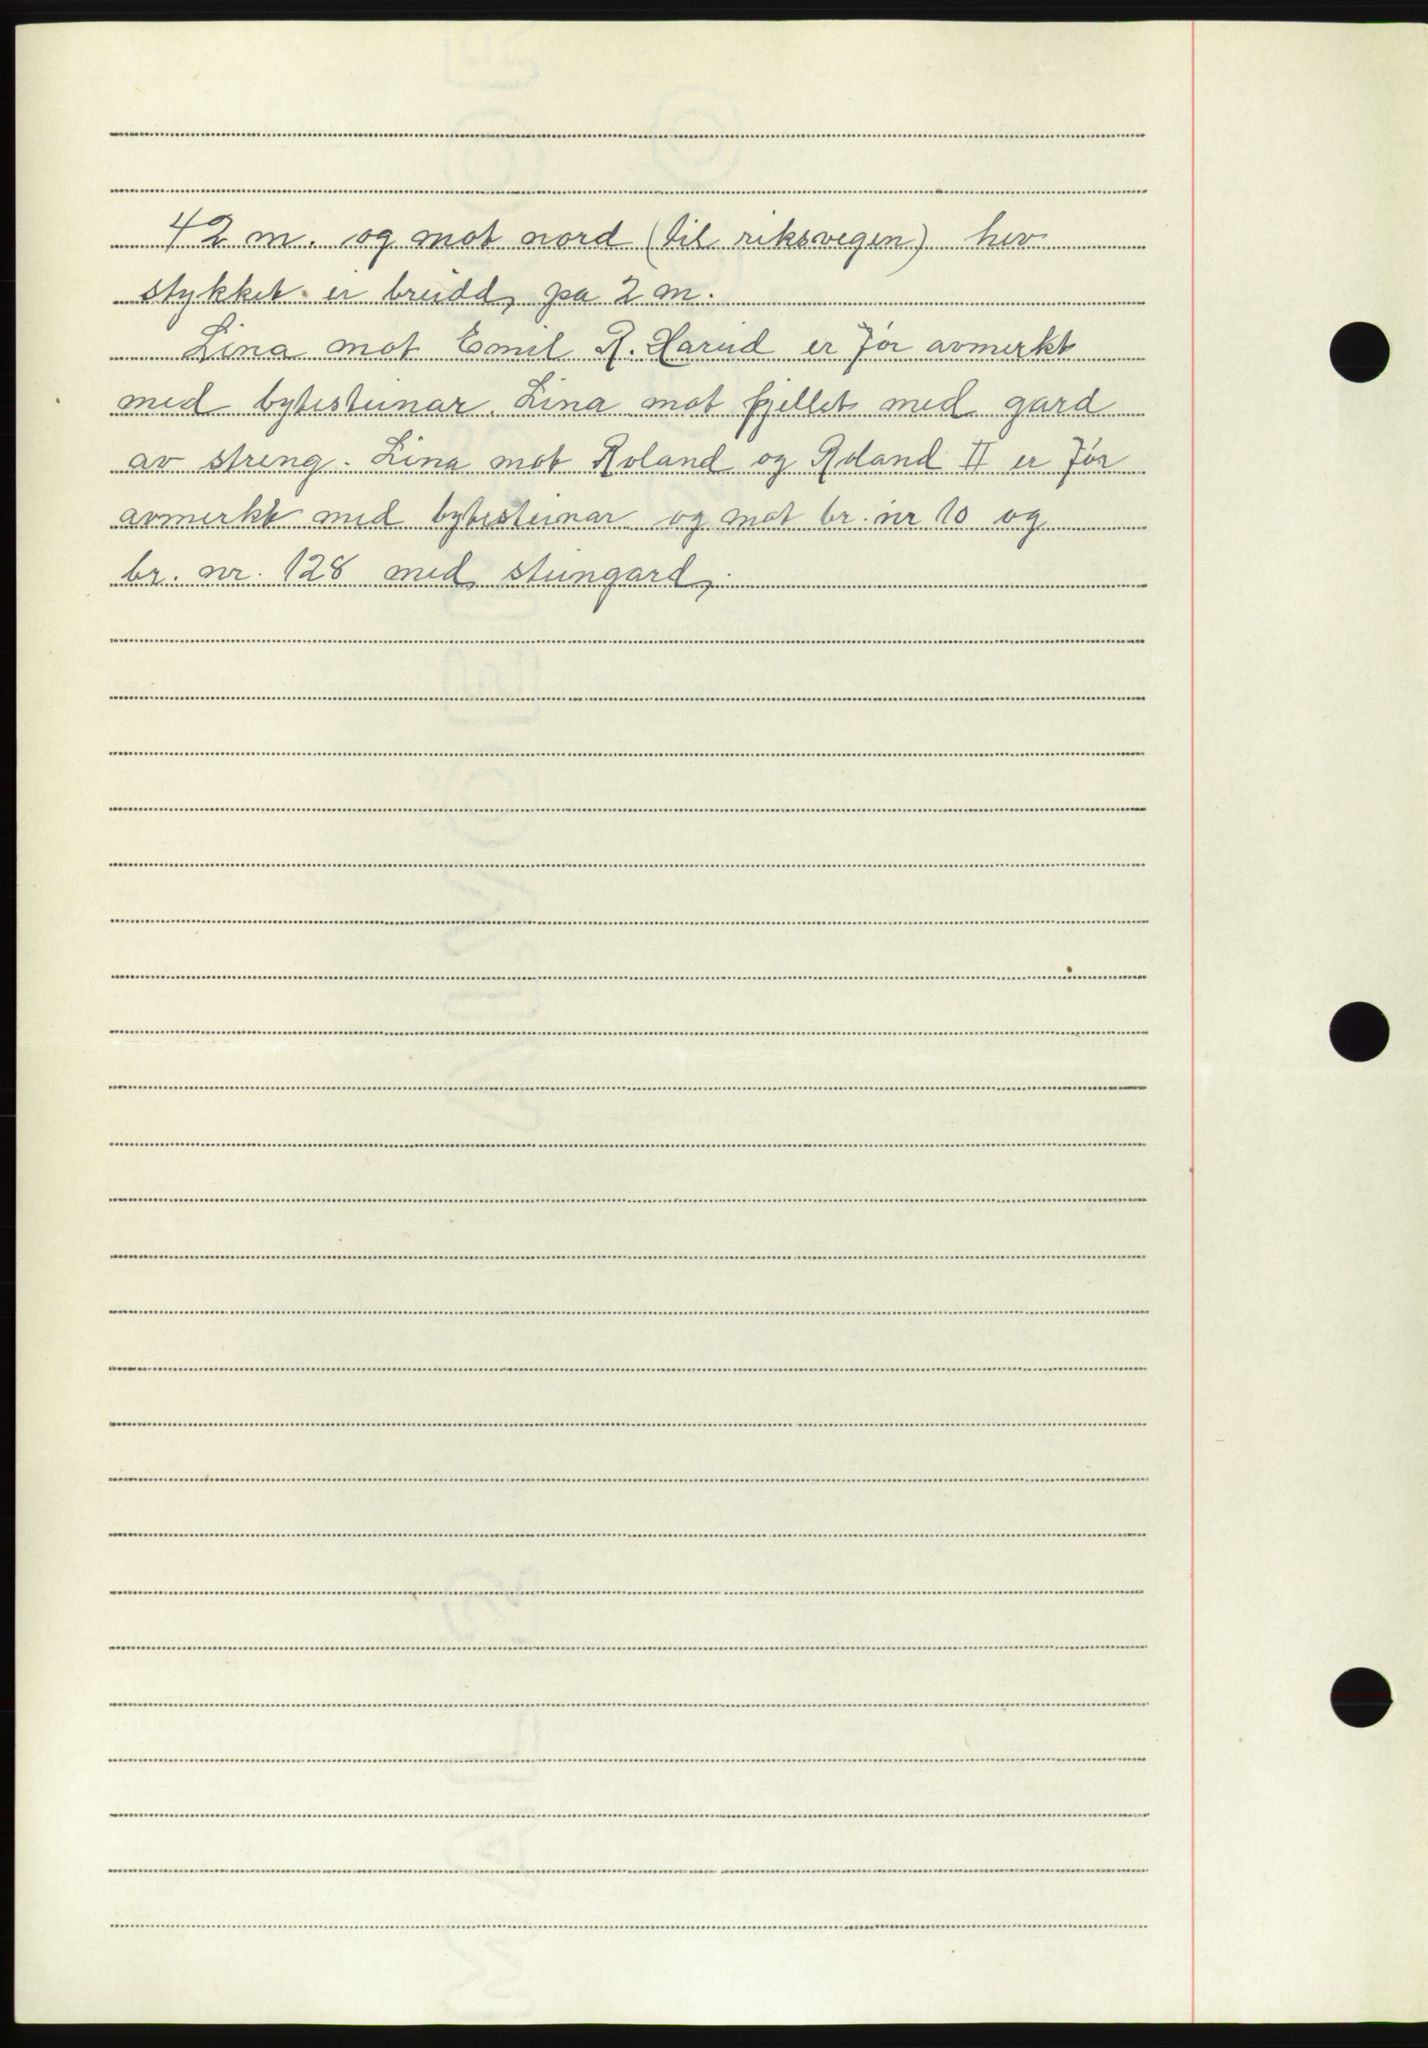 42 m. og mot nord (til riksvegen) hev
stykket ei breidd pa 2 m.
Lina mot Emil R. Hareid er för avmerkt
med bytesteinar. Lina mot fjellet med gard
av streng. Lina mot Roland og Roland II er för
avmerkt med bytesteinar og mot br. nr 10 og
br. nr. 128 med steingard.